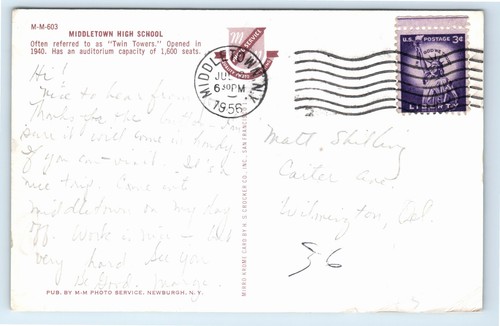 M-M-603
MIDDLETOWN HIGH SCHOOL
Often referred to as "Twin Towers." Opened in
1940. Has an auditorium capacity of 1,600 seats.
MIDDLETOWN, N.Y.
6 30 PM
1956
U.S. POSTAGE 3¢
IN GOD WE TRUST
LIBERTY
Hi!
Nice to hear
Thanks for the
sure it will come in handy.
If you can visit. It's a
nice trip. Came into
middletown on my day
off. Work is
very hard See you
Be Good. Marge
Matt
Carter Ave.
Wilmington, Cal.
36
MIRRO-KROME CARD BY H. S. CROCKER CO., INC., SAN FRANCISCO
PUB. BY M-M PHOTO SERVICE, NEWBURGH, N.Y.